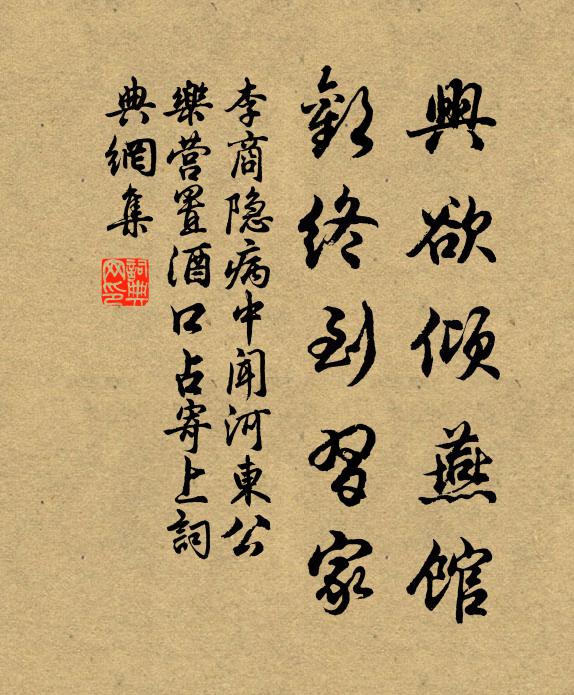 興欲傾燕館
歡終到習家
李商隐病中聞河東公
樂营置酒口占寄上詞
典網集
詞典
网印